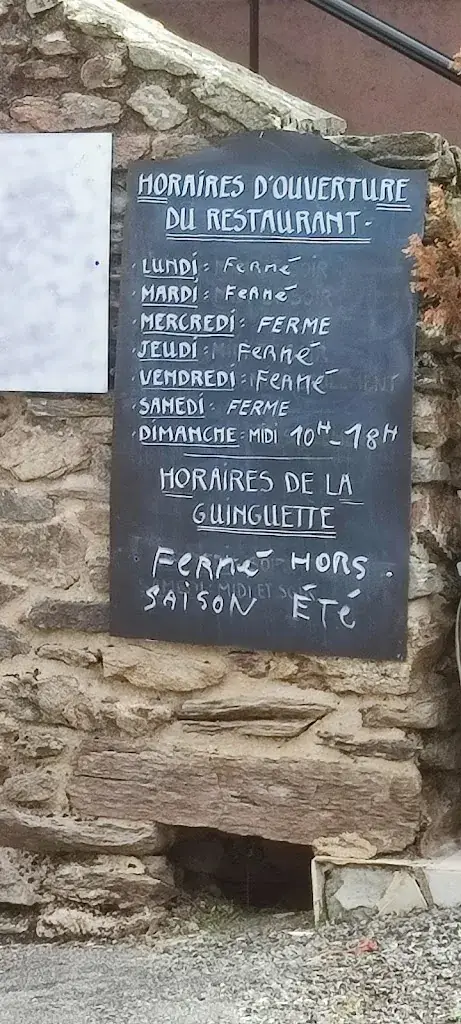 HORAIRES D'OUVERTURE
DU RESTAURANT-
LUNDI: Fermé
MARDI: Fermé
MERCREDI: FERME
JEUDI: Fermé
VENDREDI: Fermé
SAMEDI: FERME
DIMANCHE: MIDI 10H-18H
HORAIRES DE LA
GUINGUETTE
Fermé HORS
SAISON ÉTÉ